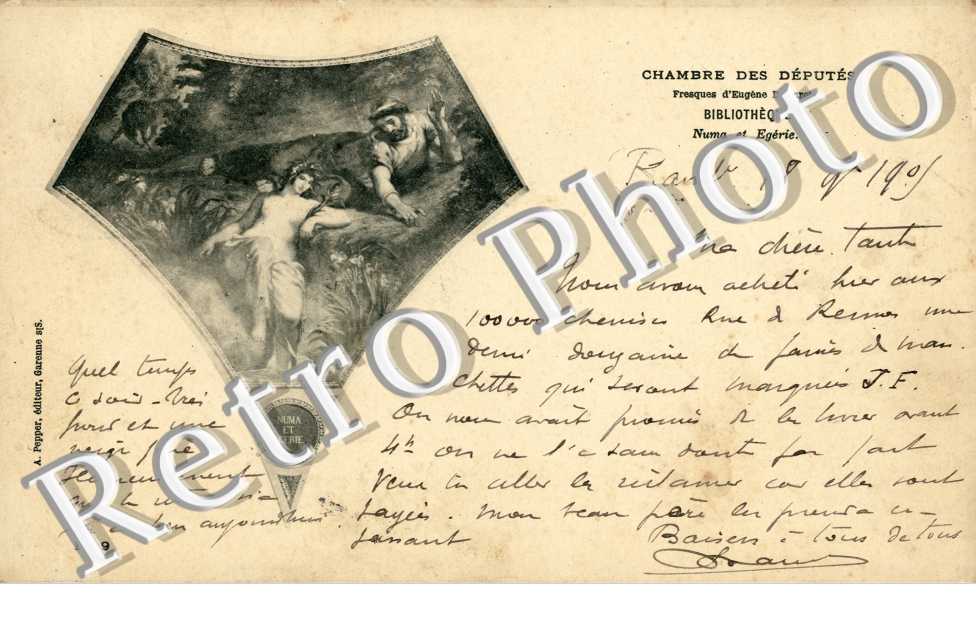 CHAMBRE DES DÉPUTÉS
Fresques d'Eugène
BIBLIOTHÈQ
Numa et Egérie.
190
Ma chère Tante
Nous avons acheté hier aux
100000 chemises Rue de Rennes une
demi douzaine de paires de man
chettes qui seront marquées J. F.
On nous avait promis de les livrer avant
4h on ne l'a sans doute pas fait
Veux tu aller les réclamer car elles sont
payées. Mon beau père les prendra en
passant
Baisers à tous de tous
Quel temps
ce soir - très
froid et une
neige
aujourd'hui
NUMA
ET
EGÉRIE
A. Pepper, éditeur, Garenne s/S.
9
Retro Photo